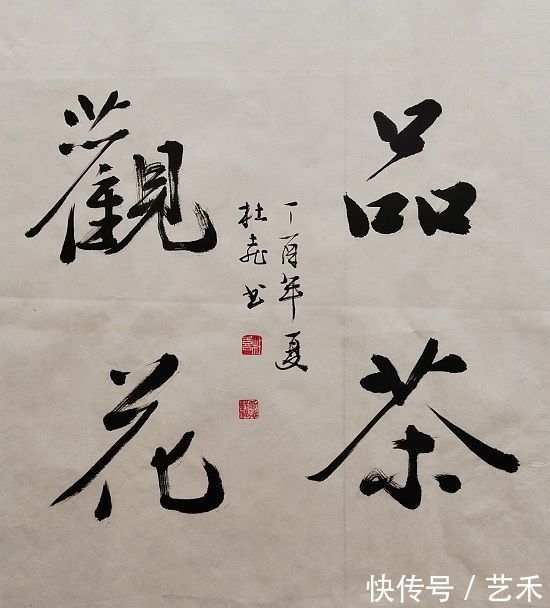 品茶
丁酉年夏
杜 书
觀花
快传号 / 艺禾